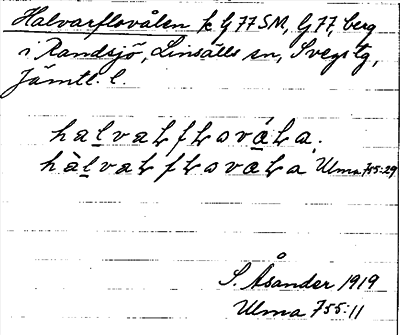 Halvarflovålen k G 77 SM, G 77, berg
i Randsjö, Linsälls sn, Svegs tg,
Jämtl. l.
halvaLfLovåLa,
hàlvaLfLovaLa Ulma 755:29
S. Åsander 1919
Ulma 755:11